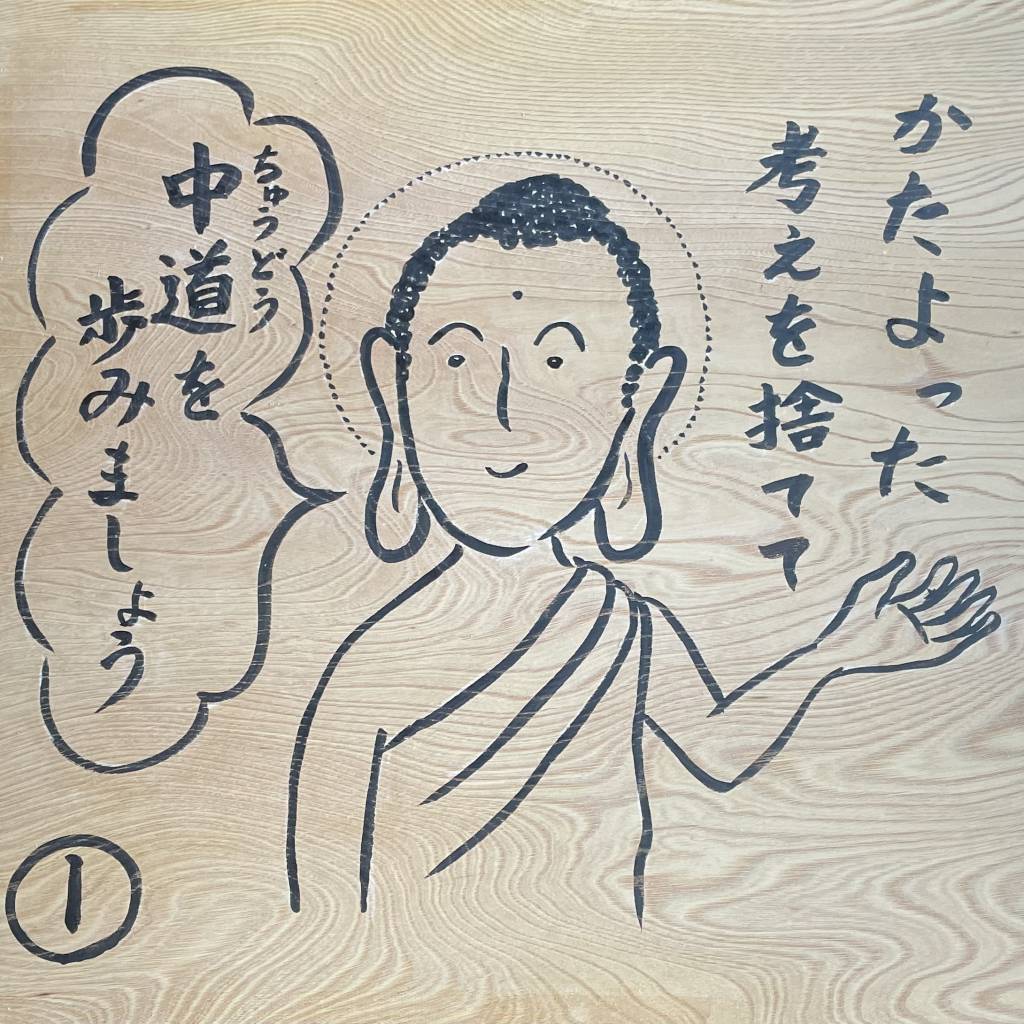 かたよった
考えを捨てて
ちゅうどう
中道を
歩みましょう
1